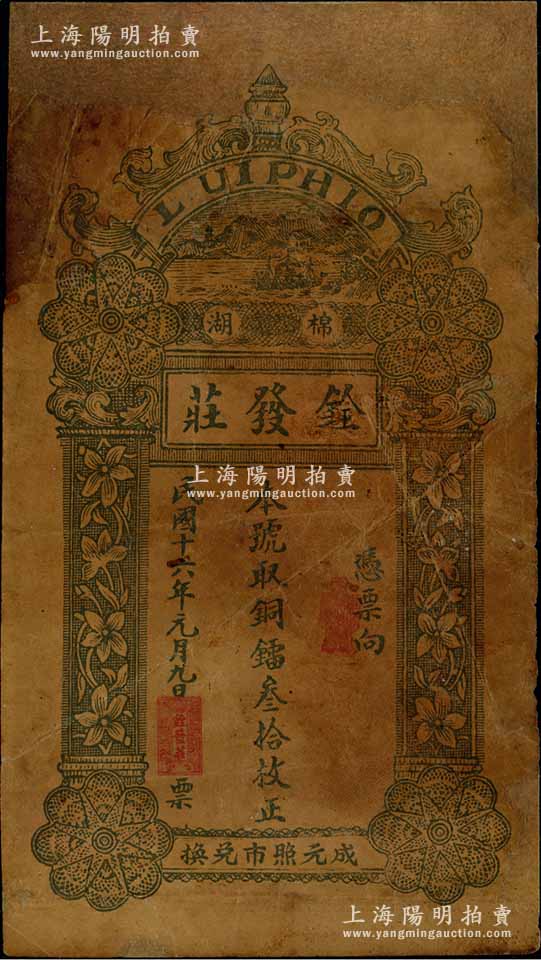 上海陽明拍賣
www.yangmingauction.com
LUIPHIO
棉湖
銓發莊
上海陽明拍賣
www.yangmingauction.com
憑票向
本號取銅鐳叁拾枚正
民國十六年元月九日
票
成元照市兌換
上海陽明拍賣
www.yangmingauction.com